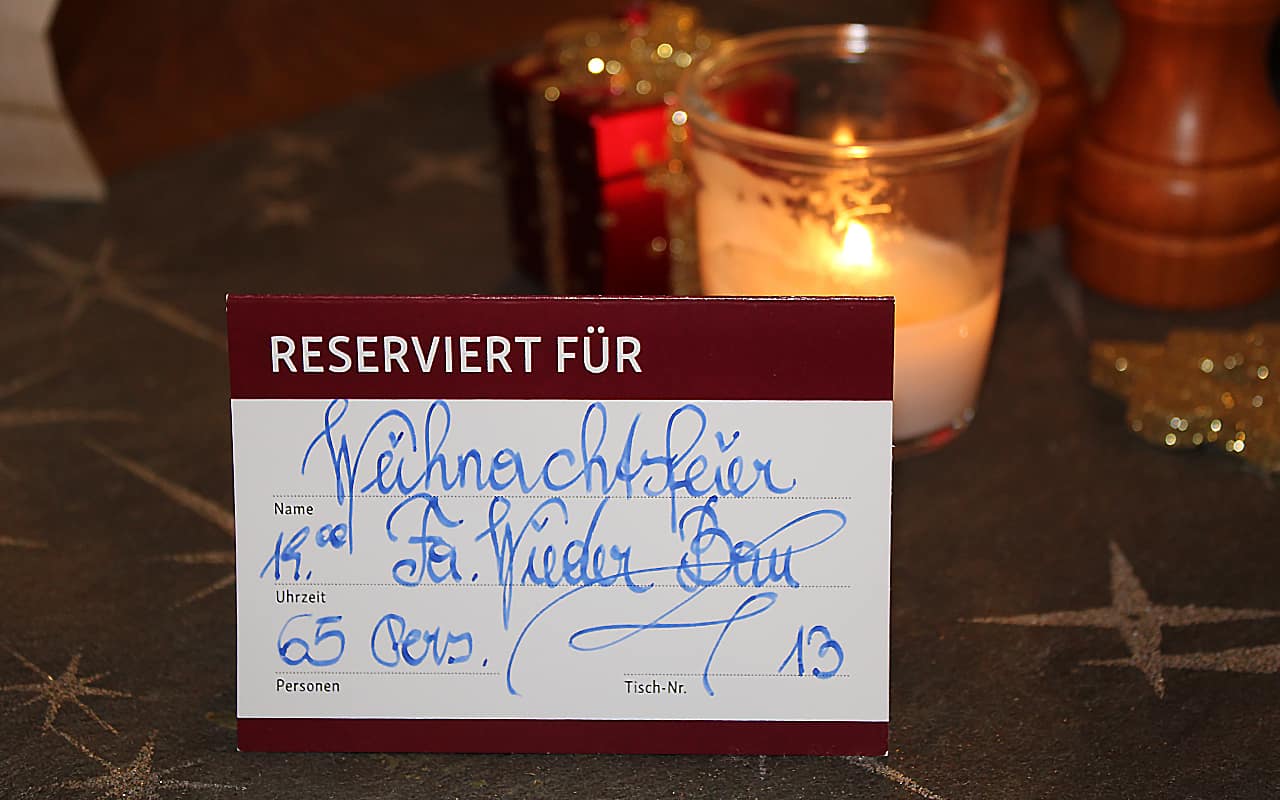 RESERVIERT FÜR
Weihnachtsfeier
Name
19.00 Fa. Wieder Bau
Uhrzeit
65 Pers. 13
Personen Tisch-Nr.